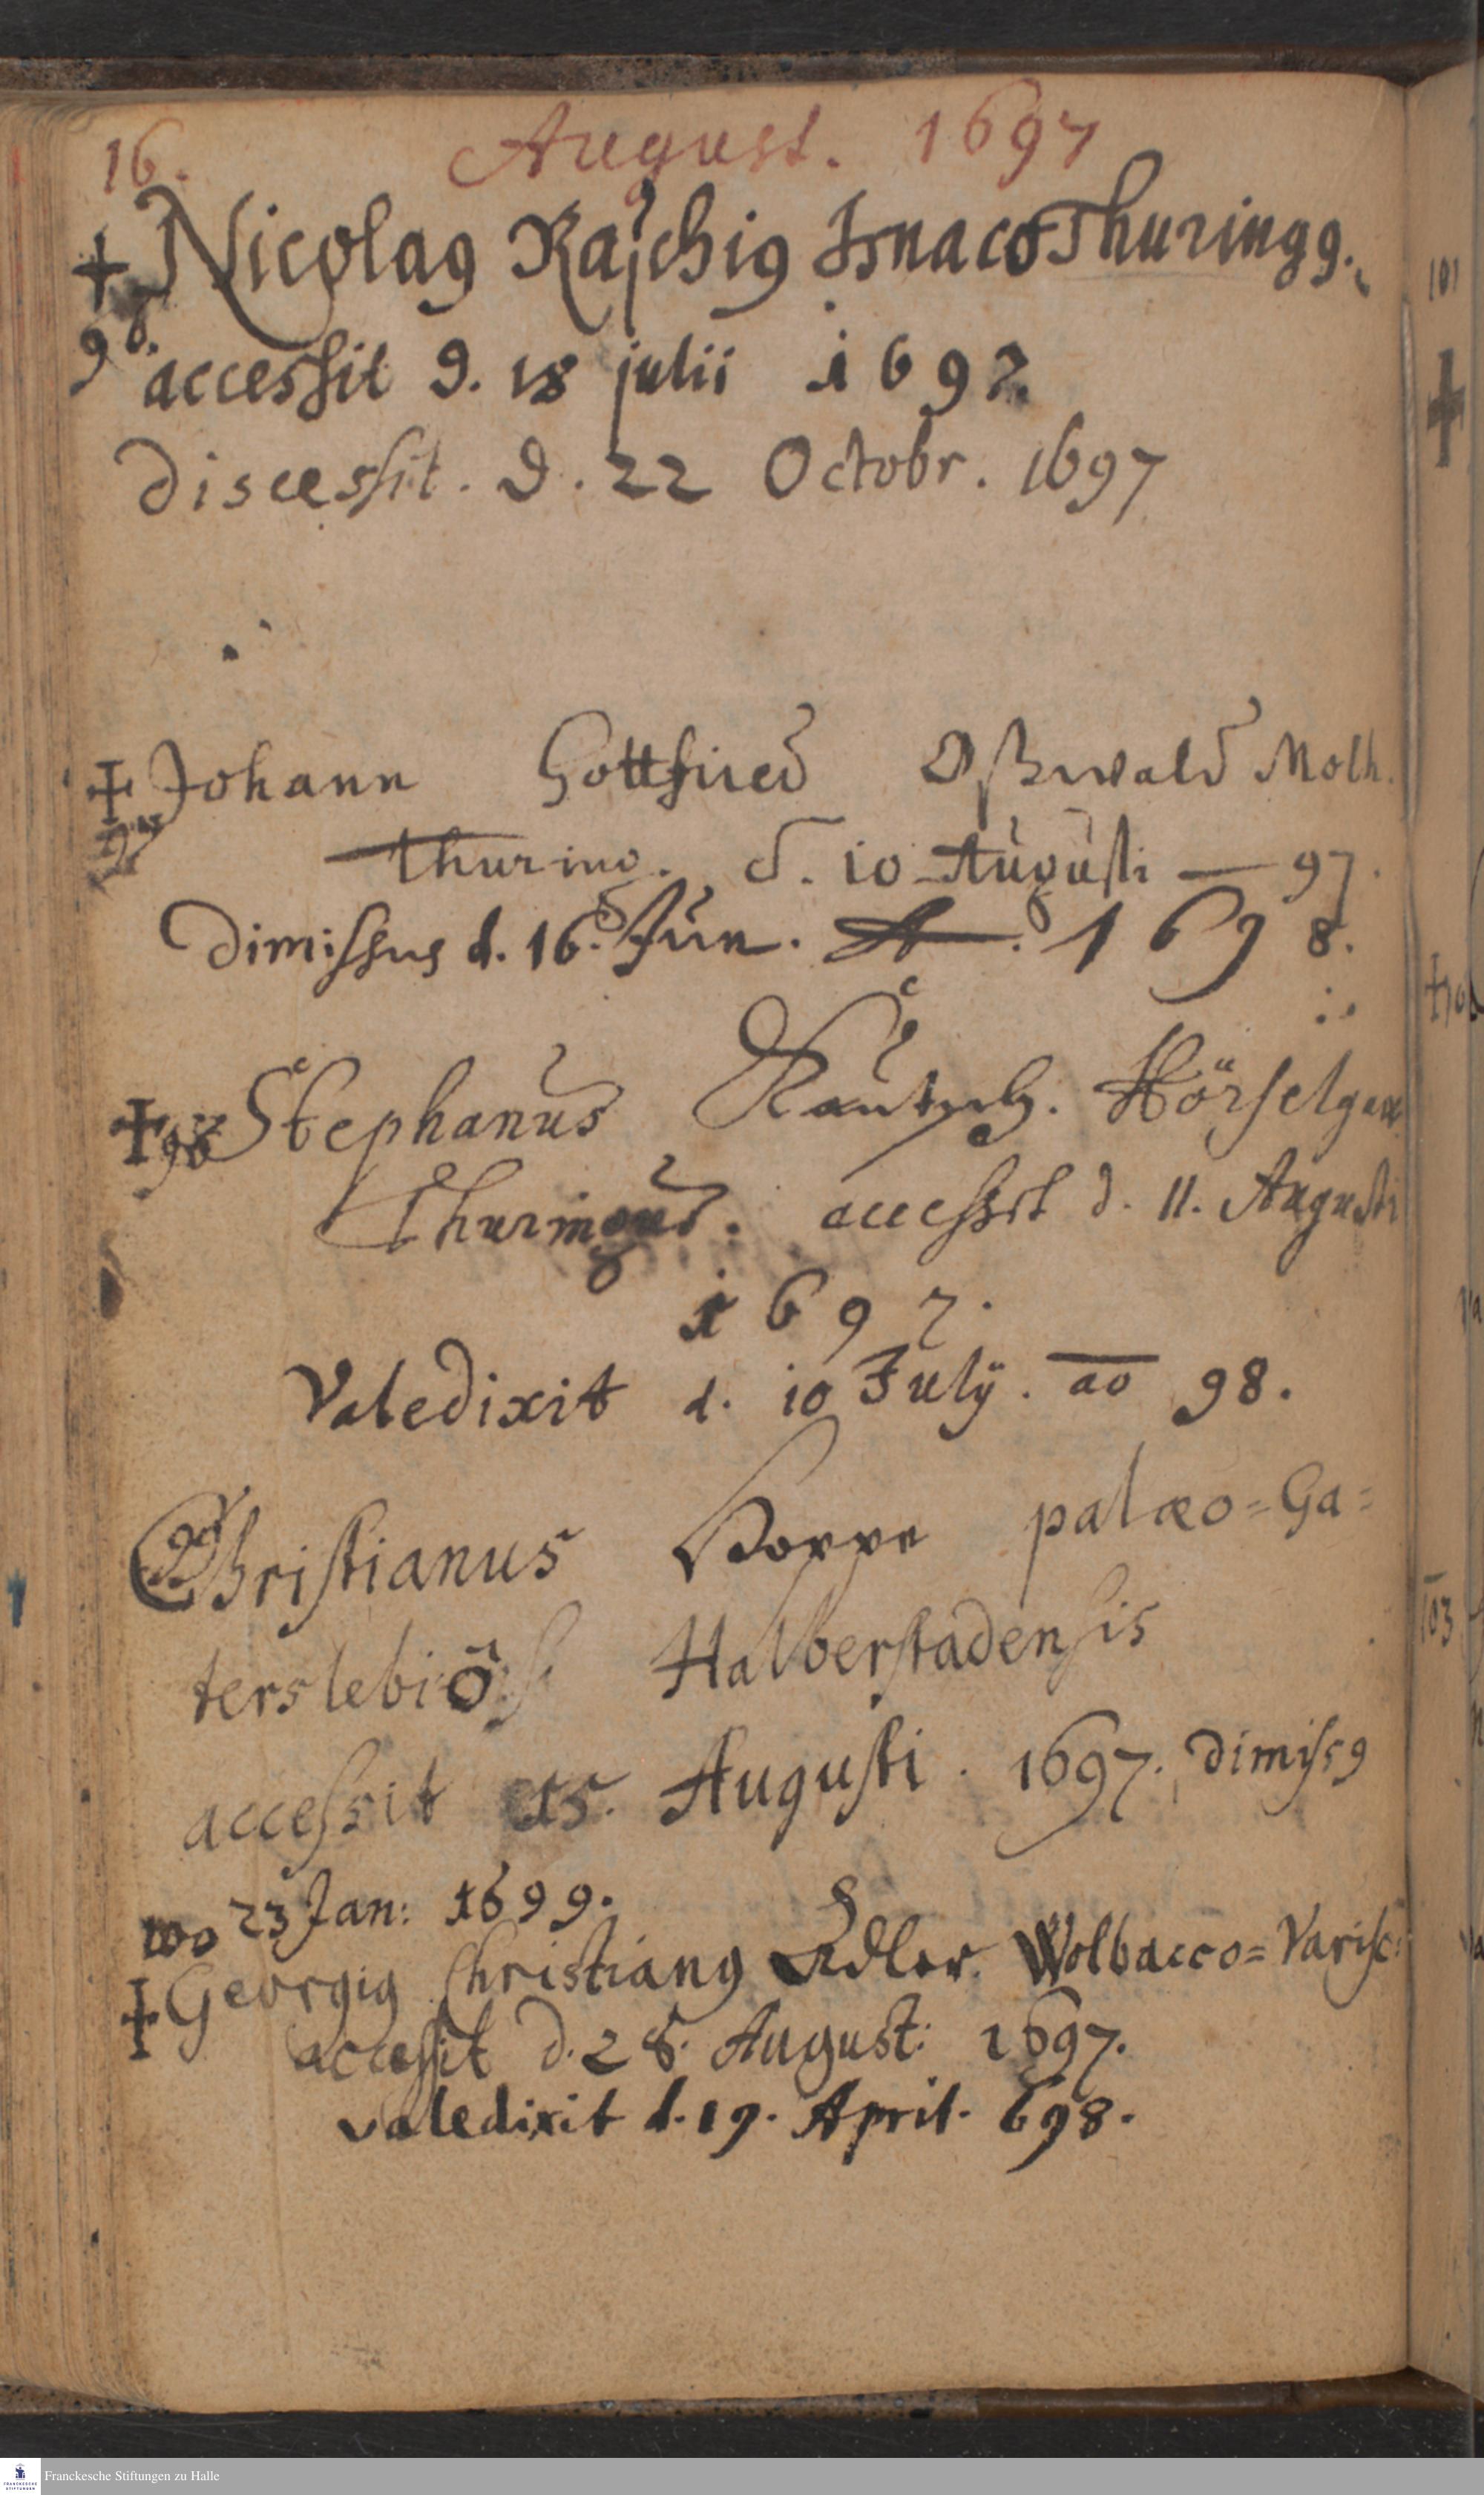 16. August. 1697
+ Nicolaꝰ Raschiꝰ Isnaco Thuringꝰ.
accessit d. 18 julii 1697.
discessit. d. 22 Octobr. 1697
+ Johann Gottfried Oßwald Molh.
97 Thuring. d. 10 Augusti — 97.
dimissus d. 16. Jun. 1698.
+ Stephanus Hörselgau
Thuringus. accessit d. 11. Augusti
1697.
Valedixit d. 10 July. ao 98.
99 Christianus Hoppe palæo=Ga=
terslebiô Halberstadensis
accessit 15. Augusti. 1697. dimissꝰ
23 Jan: 1699.
100
+ Georgiꝰ Christianꝰ Adler. Wolbacco=Varisc:
accessit d. 28. August: 1697.
valedixit d. 19. April. 698.
101
103
Franckesche Stiftungen zu Halle
FRANCKESCHE STIFTUNGEN